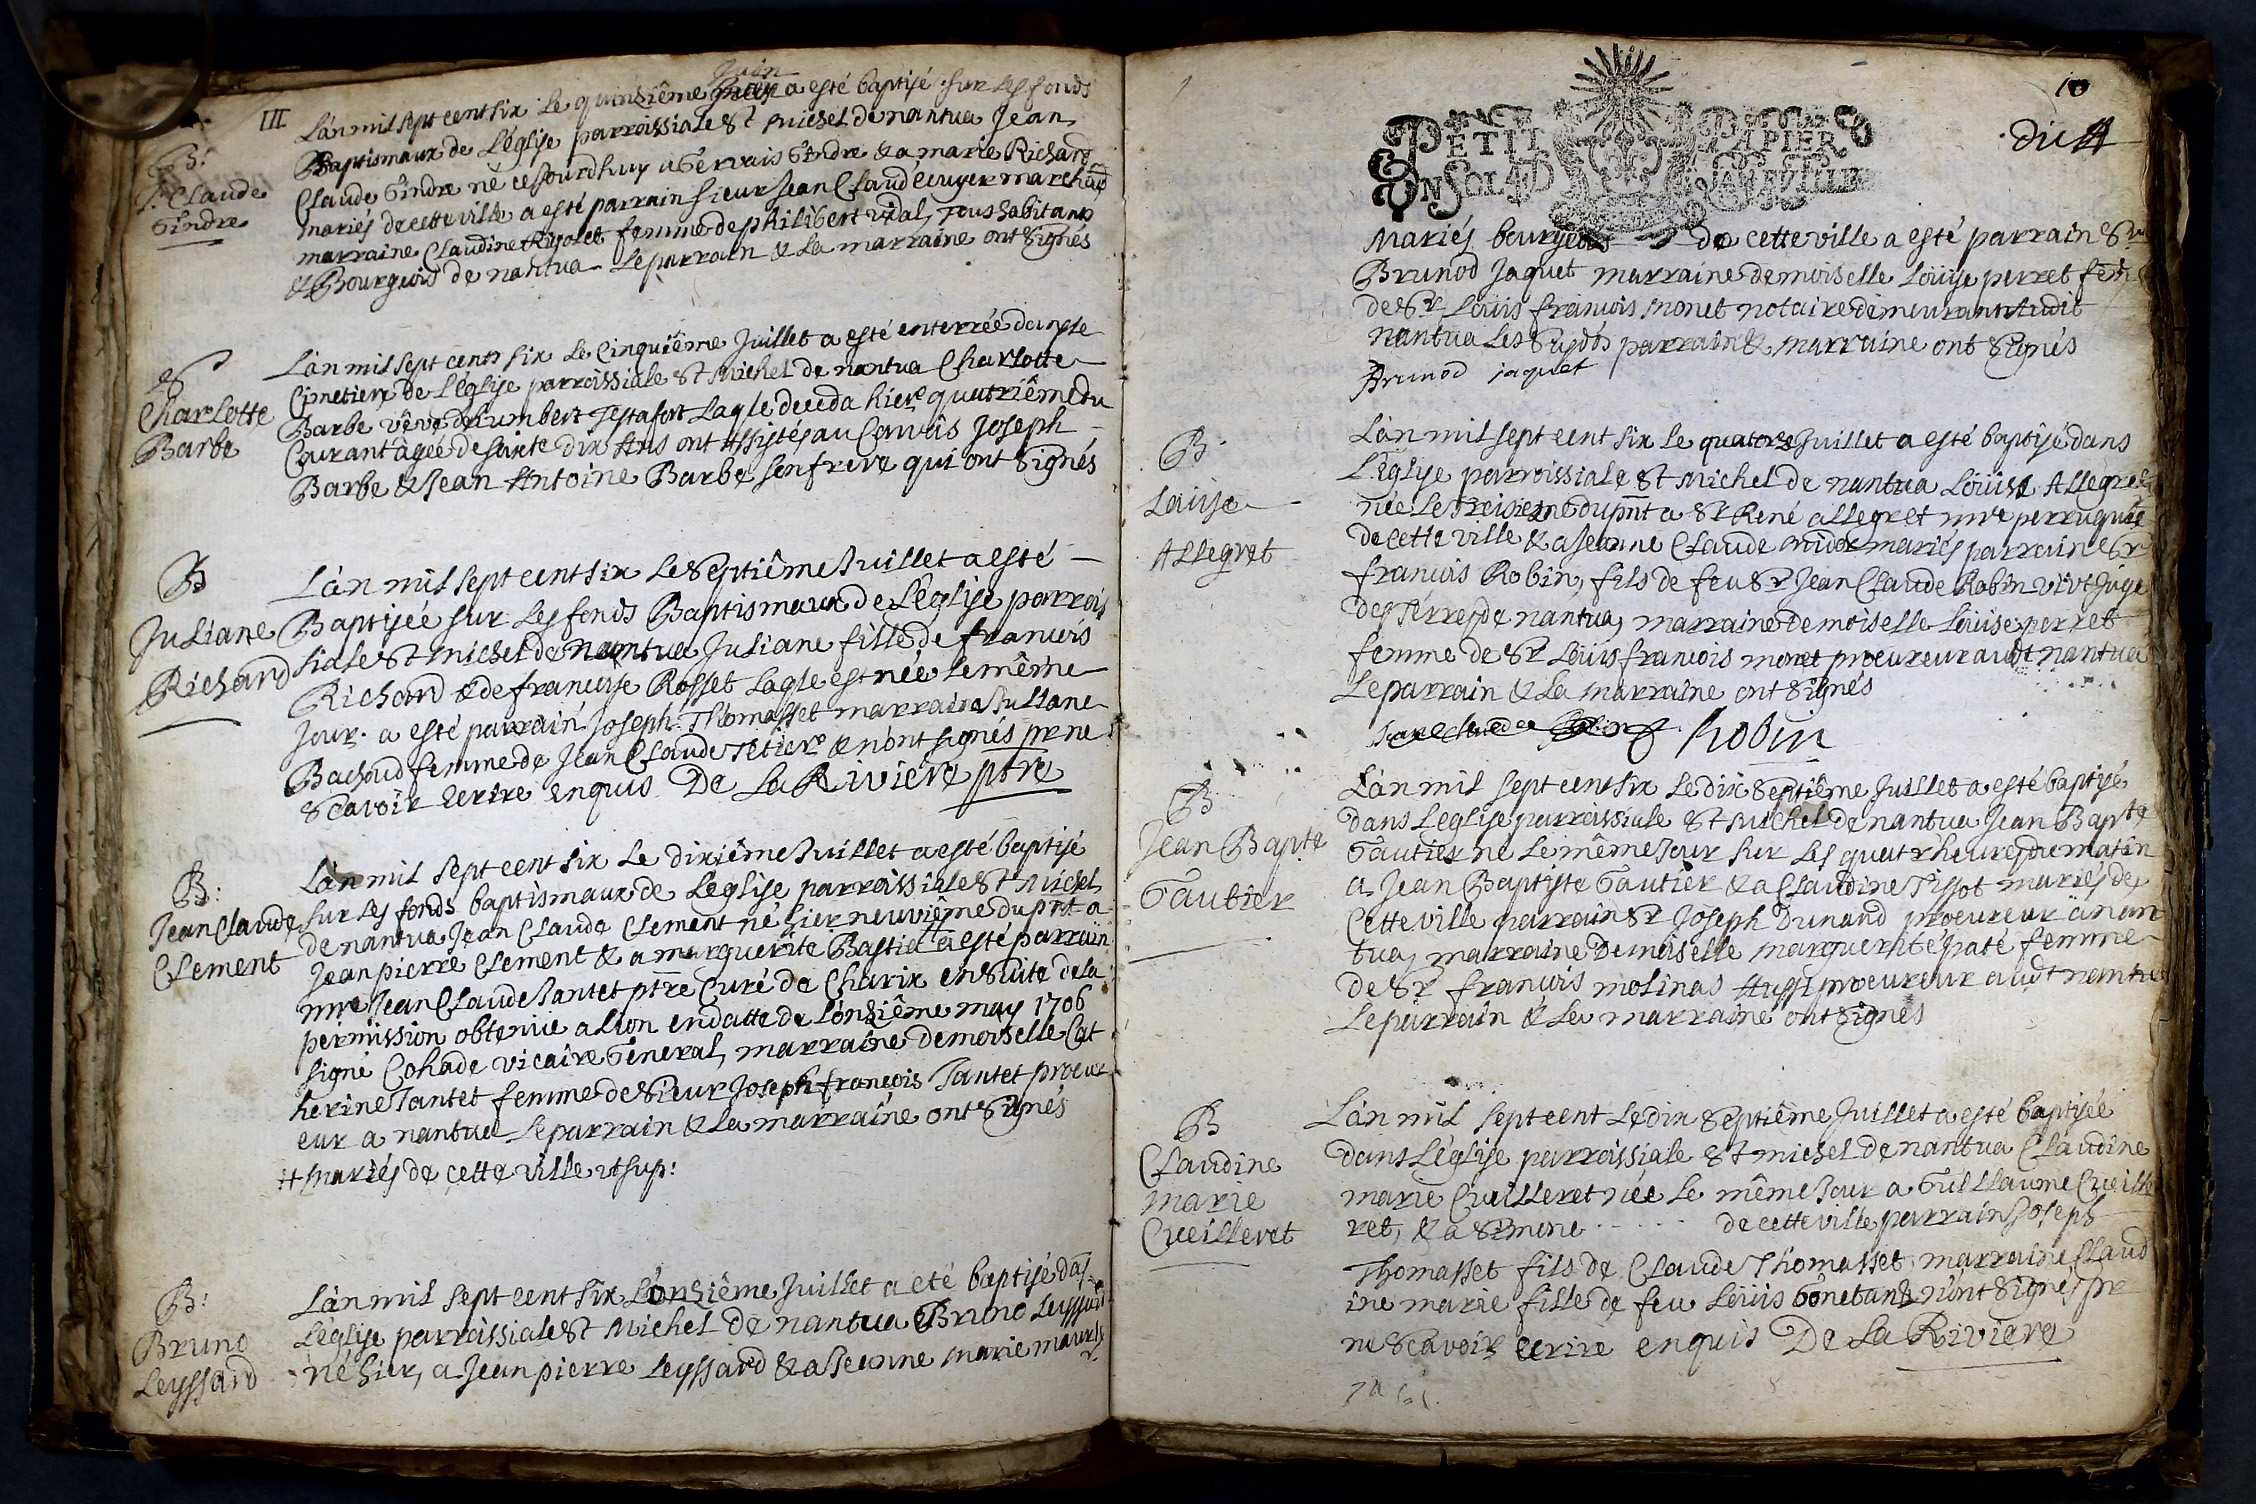 III
B:
J. Claude
Gindre
juin
L'an mil sept cent six le quinsiême may a esté baptisé sur les fonds
Baptismaux de L'église parroissiale St michel de nantua Jean
Claude Gindre né ce jourdhuy a Gervais Gindre & a marie Richard
mariés de cette ville a esté parrain sieur Jean Claude Cuyer marchãd
marraine Claudine Rigolet femme de philibert vidal, Tous habitants
& Bourgeois de nantua Le parrain & La marraine ont Signés
S
Charlotte
Barbe
L'an mil sept cents six Le Cinquiême Juillet a esté enterrée dans le
Cimetiere de L'église parroissiale St Michel de nantua Charlotte
Barbe vêve d'humbert Testafort Laqle deceda hier quatriême du
Courant âgée de soixte dix Ans ont Assistés au Convois Joseph
Barbe & Jean Antoine Barbe son frere qui ont Signés
B
Juliane
Richard
L'an mil sept cent six Le Septiême Juillet a esté
Baptisée sur Les fonds Baptismaux de L'église parrois
siale St michel de nantua Juliane fille de francois
Richard & de francoise Rosset Laqle est née le même
Jour. a esté parrain Joseph Thomasset marraine Julliane
Bachod femme de Jean Claude Tetier & n'ont signés pr ne
Scavoir ecrire enquis De La Riviere ptre
B:
Jean Claude
Clement
L'an mil Sept cent six Le dixiême Juillet a esté baptisé
sur Les fonds baptismaux de Leglise parroissiale St Michel
de nantua Jean Claude Clement né hier neuviême du pnt a
Jean pierre Clement & a marguerite Bastia # a esté parrain
mre Jean Claude Jantet ptre Curé de Charix ensuite de la
permission obtenüe a Lion en datte de Lonziême may 1706
signé Cohade vicaire General, marraine demoiselle Cat
herine Jantet femme de Sieur Joseph francois Jantet procur
eur a nantua Le parrain & La marraine ont Signés
# mariés de cette ville ut sup:
B:
Bruno
Leyssard
L'an mil sept cent six L'onziême Juillet a eté baptisé dãs
L'église parroissiale St Michel de nantua Bruno Leyssard
né hier, a Jean pierre Leyssard & a Jeanne marie
10
PETIT PAPIER
UN SOL 4 D LA FEUILLE
Mariés bourgeois de cette ville a esté parrain Sr
Brunod Jaquet marraine demoiselle Loüise perret
de Sr Loüis francois monet notaire demeurant audit
nantua Les Susdts parrain & marraine ont Signés
Brunod jaquet
B
Laüise
Allegret
L'an mil sept cent six le quatorse Juillet a esté baptisé dans
L'église parroissiale St Michel de nantua Loüise Allegret
née Le Treiziême du pnt a Sr René allegret mre perruquie
de cette ville & a Jeanne Claude mariés parrain Sr
francois Robin, fils de feu Sr Jean Claude Robin Juge
des Terres de nantua, marraine demoiselle Loüise perret
femme de Sr Loüis francois monet procureur audt nantua
Le parrain & La marraine ont Signés
Robin
B
Jean Bapte
Gautier
L'an mil sept cent six Le dix Septiême Juillet a esté baptisé
dans L'eglise parroissiale St Michel de nantua Jean Bapte
Gautier né Le même Jour sur Les quatr heures du matin
a Jean Baptiste Gautier & a Claudine Tissot mariés de
Cette ville parrain Sr Joseph Dunand procureur a nan
tua, marraine Demoiselle marguerite paté femme
de Sr francois molinas Aussi procureur audt nantua
Le parrain & La marraine ont Signés
B
Claudine
marie
Cueilleret
L'an mil sept cent Le dix Septiême Juillet a esté baptisée
dans L'église parroissiale St michel de nantua Claudine
marie Cueilleret née Le même Jour a Guillaume Cueille
ret, & a Simone . . . . . de cette ville parrain Joseph
Thomasset fils de Claude Thomasset marraine Claud
ine marie fille de feu Loüis & n'ont Signés pr
ne Scavoir ecrire enquis De La Riviere